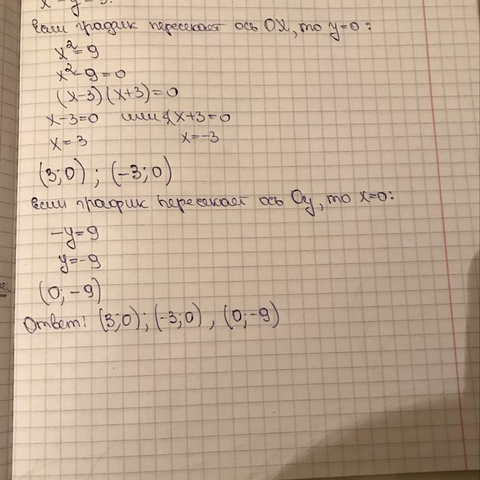 x² - y = 9.
Если график пересекает ось OX, то y=0:
x²=9
x²-9=0
(x-3)(x+3)=0
x-3=0 или x+3=0
x=3 x=-3
(3;0); (-3;0)
Если график пересекает ось Oy, то x=0:
-y=9
y=-9
(0;-9)
Ответ: (3;0); (-3;0), (0;-9)